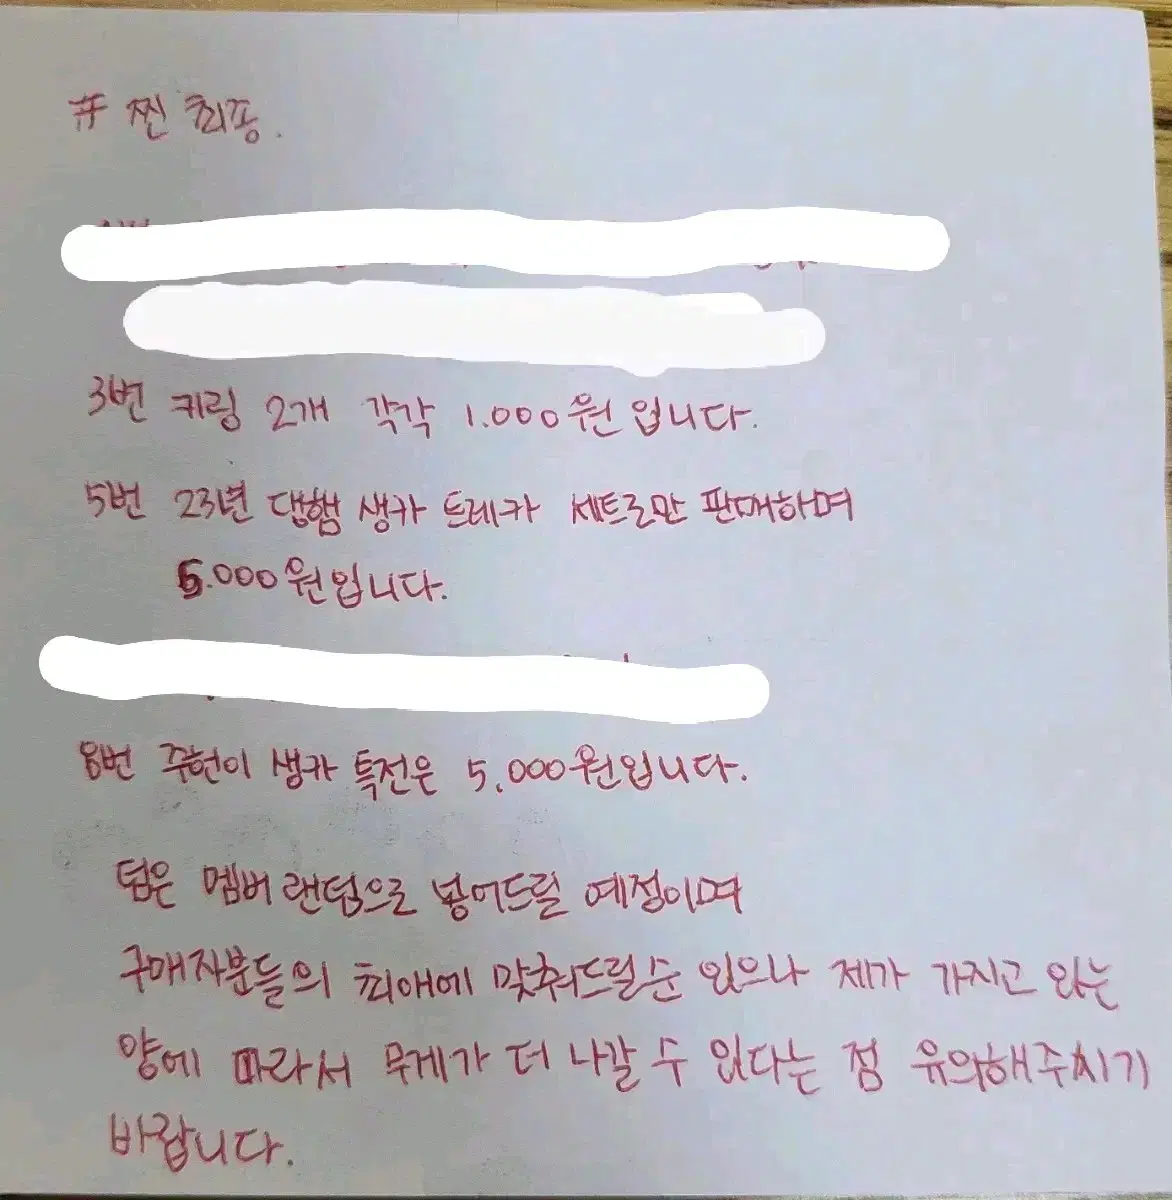 # 찐 최종.
3번 키링 2개 각각 1.000원 입니다.
5번 23년 댕햄 생카 트레카 세트로만 판매하며
5.000원입니다.
8번 주헌이 생카 특전은 5.000원입니다.
덤은 멤버 랜덤으로 넣어드릴 예정이며
구매자분들의 최애에 맞춰드릴순 있으나 제가 가지고 있는
양에 따라서 무게가 더 나갈 수 있다는 점 유의해주시기
바랍니다.